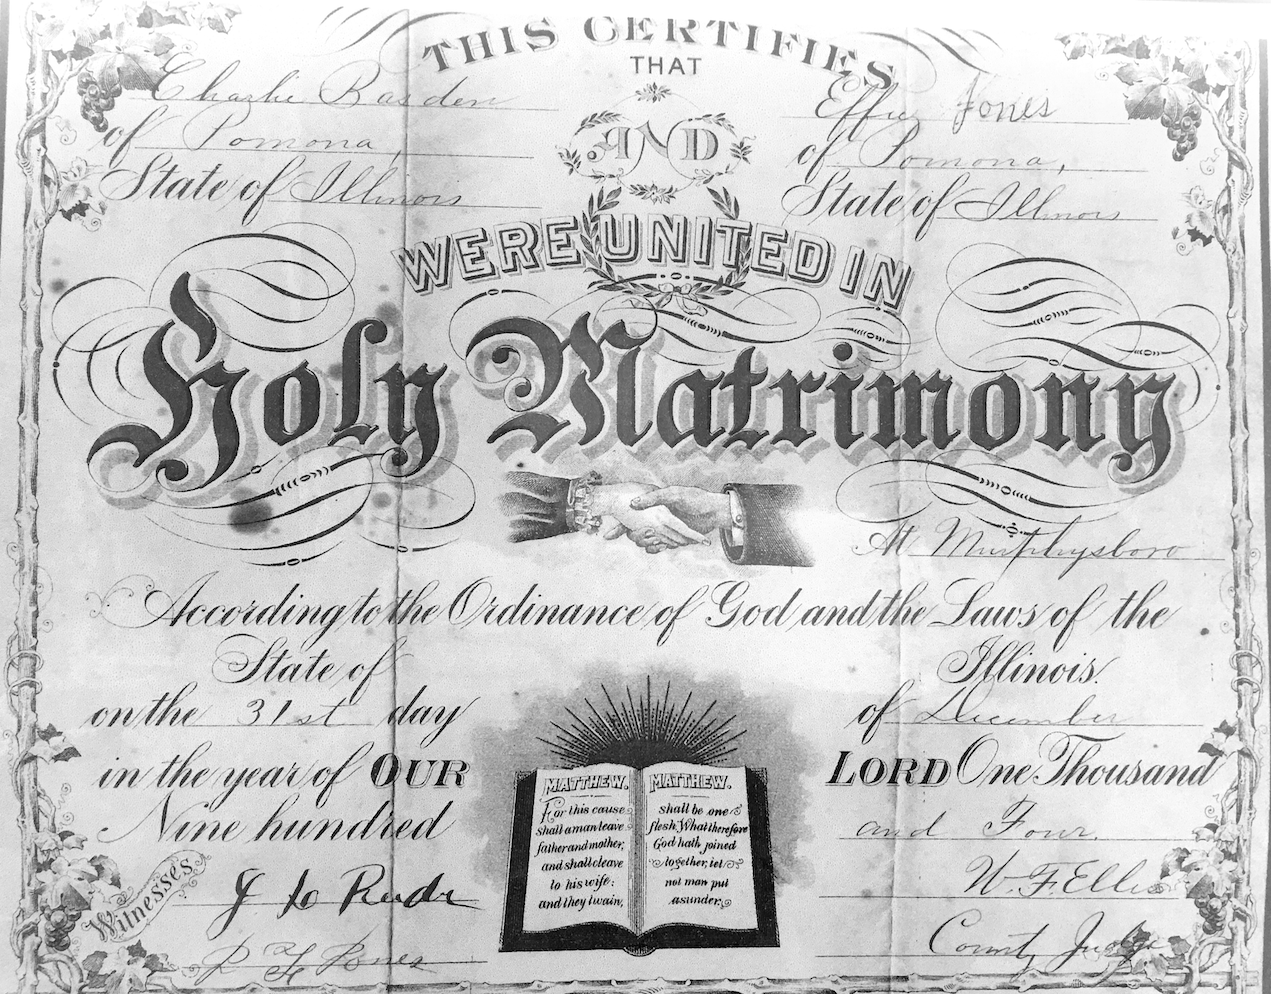 THIS CERTIFIES
THAT
Charlie Basden
of Pomona,
State of Illinois
AND
Effie Jones
of Pomona,
State of Illinois
WERE UNITED IN
Holy Matrimony
At Murphysboro
According to the Ordinance of God and the Laws of the
State of Illinois.
on the 31st day of December
in the year of OUR LORD One Thousand
Nine hundred and Four.
MATTHEW.
For this cause
shall a man leave
father and mother,
and shall cleave
to his wife:
and they twain,
MATTHEW.
shall be one
flesh. What therefore
God hath joined
together, let
not man put
asunder.
Witnesses
W. F. Ellis
County Judge